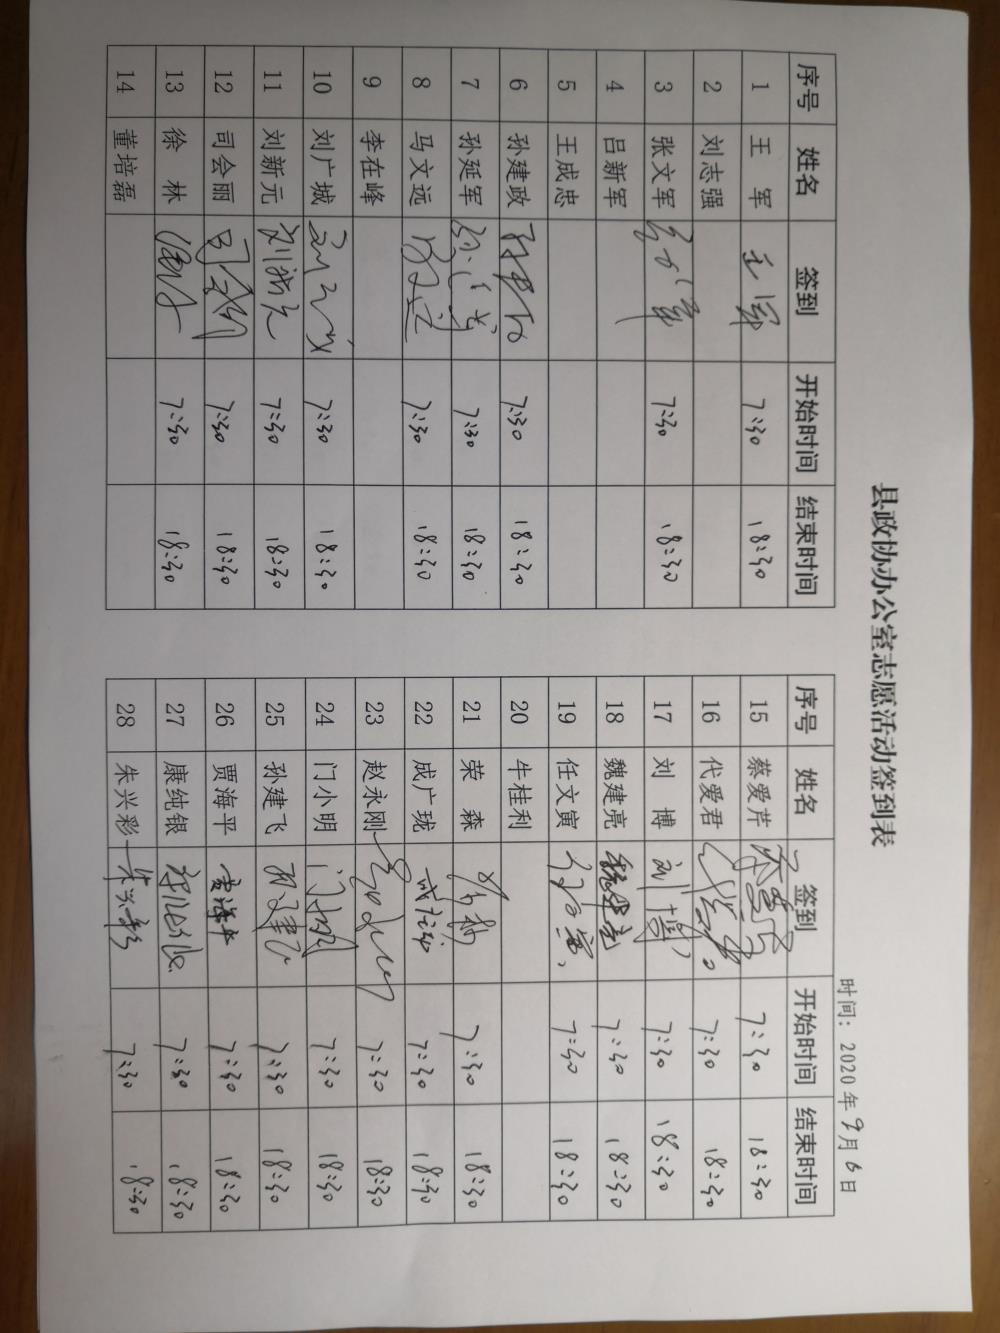 县政协办公室志愿活动签到表
时间：2020年9月6日
序号 姓名 签到 开始时间 结束时间
1 王军 王军 7:30 18:30
2 刘志强
3 张文军 7:30 18:30
4 吕新军
5 王成忠
6 孙建政 7:30 18:30
7 孙延军 7:30 18:30
8 马文远 马文远 7:30 18:30
9 李在峰
10 刘广城 7:30 18:30
11 刘新元 刘新元 7:30 18:30
12 司会丽 司会丽 7:30 18:30
13 徐林 7:30 18:30
14 董培磊
序号 姓名 签到 开始时间 结束时间
15 蔡爱芹 7:30 18:30
16 代爱君 7:30 18:30
17 刘博 刘博 7:30 18:30
18 魏建亮 魏建亮 7:30 18:30
19 任文寅 任文寅 7:30 18:30
20 牛桂利
21 荣森 7:30 18:30
22 成广珑 成广珑 7:30 18:30
23 赵永刚 7:30 18:30
24 门小明 门小明 7:30 18:30
25 孙建飞 孙建飞 7:30 18:30
26 贾海平 贾海平 7:30 18:30
27 康纯银 7:30 18:30
28 朱兴彩 朱兴彩 7:30 18:30